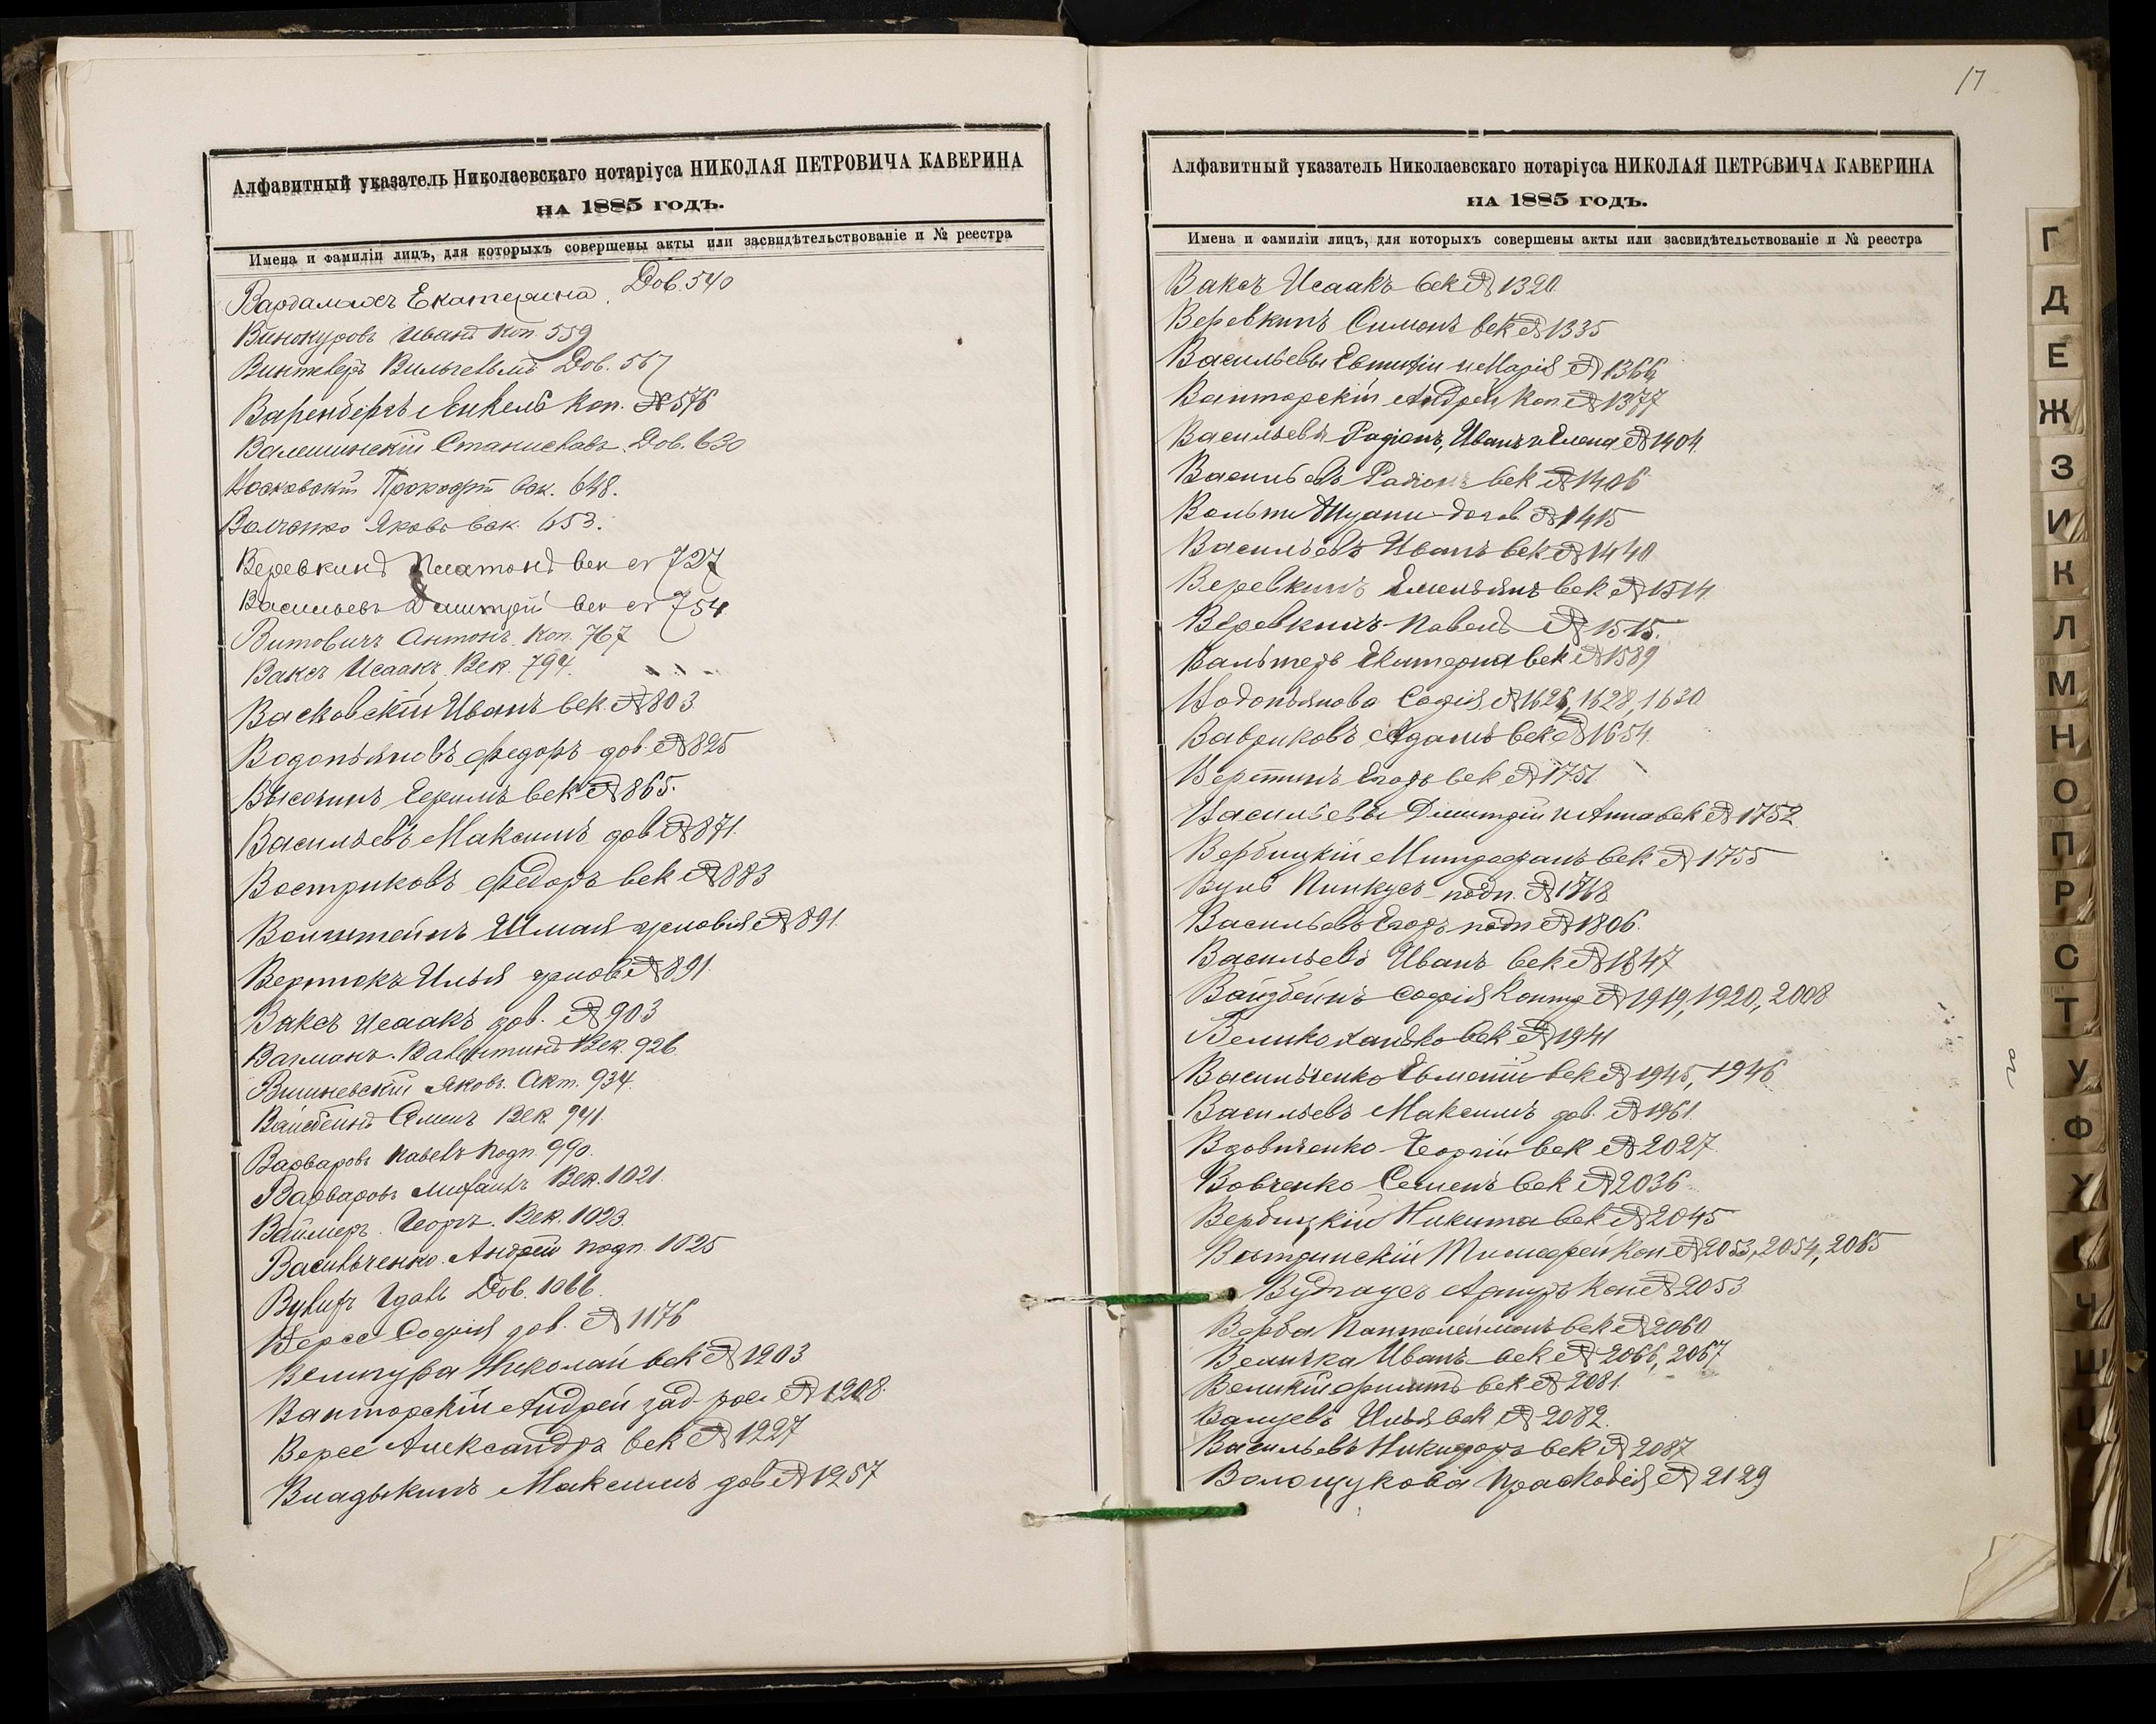 Алфавитный указатель Николаевскаго нотаріуса НИКОЛАЯ ПЕТРОВИЧА КАВЕРИНА
НА 1885 ГОДЪ.
Имена и фамиліи лицъ, для которыхъ совершены акты или засвидѣтельствованіе и № реестра
Екатерина Дов. 540
Винокуровъ Иванъ Коп. 559
Винтверъ Вильгельмъ Дов. 567
Варенбергъ Янкель Коп. № 576
Валешинскій Станиславъ. Дов. 630
Прокофій век. 648.
Волченко Яковъ век. 653.
Веревкинъ Платонъ век № 727
Васильевъ Дмитрій век № 754
Витовичъ Антонъ. Коп. 767
Ваксъ Исаакъ, Век. 794.
Васковскій Иванъ век. № 803
Водопьяновъ Федоръ дов. № 825
Высочинъ Герасимъ век № 865.
Васильевъ Максимъ дов № 871.
Востриковъ Федоръ век № 883
Вольштейнъ Шмая условія № 891.
Илья услов № 891.
Ваксъ Исаакъ дов. № 903
Вагманъ Валентинъ Век. 926
Вишневскій Яковъ. Акт. 934.
Век. 941.
Варваровъ Павелъ Подп. 990.
Варваровъ Век. 1021.
Ваймеръ. Георгъ. Век. 1023.
Васильченко. Андрей подп. 1025
Дов. 1066.
Версе Софія дов. № 1176
Николай век № 1203
Ванторскій Андрей зад. рос № 1208.
Версе Александръ век № 1227
Владыкинъ Максимъ дов № 1257
17
Алфавитный указатель Николаевскаго нотаріуса НИКОЛАЯ ПЕТРОВИЧА КАВЕРИНА
НА 1885 ГОДЪ.
Имена и фамиліи лицъ, для которыхъ совершены акты или засвидѣтельствованіе и № реестра
Ваксъ Исаакъ век № 1320
Веревкинъ Симонъ век № 1335
Васильевы Евтихій и Марія № 1366
Ванторскій Андрей Коп. № 1377
Васильевы Радіонъ, Иванъ и Елена № 1404.
Васильевъ Радіонъ век № 1406
догов. № 1415
Васильевъ Иванъ век № 1440
Веревкинъ Емельянъ век № 1514
Веревкинъ Павелъ № 1515.
Вальтеръ Екатерина век № 1589
Водопьянова Софія № 1626, 1628, 1630
Вавриковъ Адамъ век № 1654.
Егоръ век № 1751
Васильевы Дмитрій и Анна век № 1752
Вербицкій Митрофанъ век № 1755
Вуль Пинкусъ подп. № 1768
Васильевъ Егоръ подп № 1806.
Васильевъ Иванъ век № 1847
Вайзбейнъ Софія Контр № 1919, 1920, 2008
век № 1941
Васильченко Евменій век № 1945, 1946
Васильевъ Максимъ дов. № 1961.
Вдовиченко Георгій век № 2027
Вовченко Семенъ век № 2036
Вербицкій Никита век № 2045
Тимофей Коп № 2053, 2054, 2065
Артуръ Коп № 2053
Верба Пантелеймонъ век № 2060
Величка Иванъ век № 2066, 2067
Великій Филипъ век № 2081.
Илья век № 2082.
Васильевъ Никифоръ век № 2087
Волощукова Прасковія № 2129
Г
Д
Е
Ж
З
И
К
Л
М
Н
О
П
Р
С
Т
У
Ф
Х
Ц
Ч
Ш
Щ